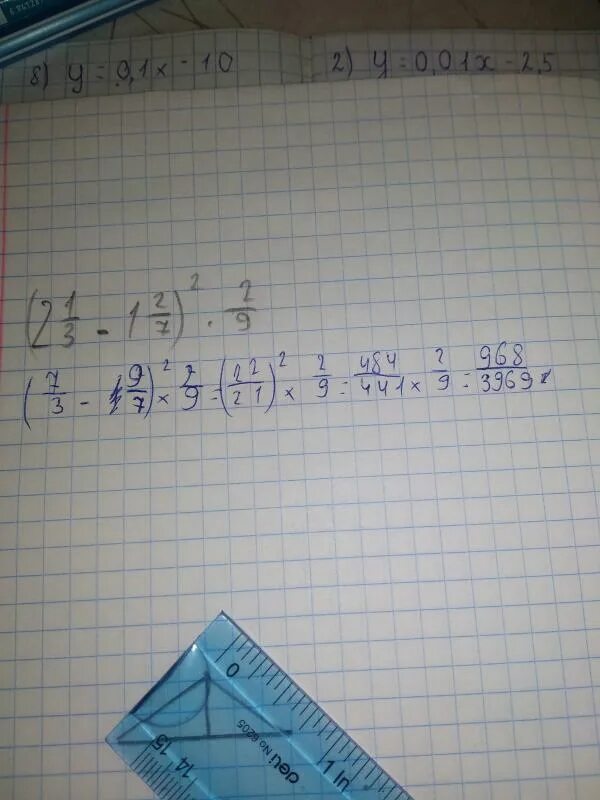 8) y = 0,1x - 10
2) y = 0,01x - 2,5
(2 1/3 - 1 2/7)² · 2/9
(7/3 - 9/7)² × 2/9 = (22/21)² × 2/9 = 484/441 × 2/9 = 968/3969
0
15
14
deli No 6205
1 in